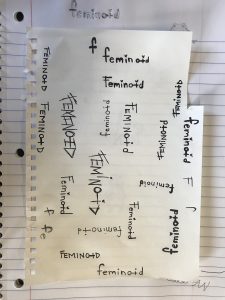 feminoid
f feminoid
Feminoid
FEMINOID
FEMINOID
FEMINOID
feminoid
FEMINOID
FEMINOID
FEMINOID
feminoid
FEMINOID
FEMINOID
feminoid
F
f
Feminoid
FEMINOID
Feminoid
feminoid
f fe
feminoid
FEMINOID
feminoid